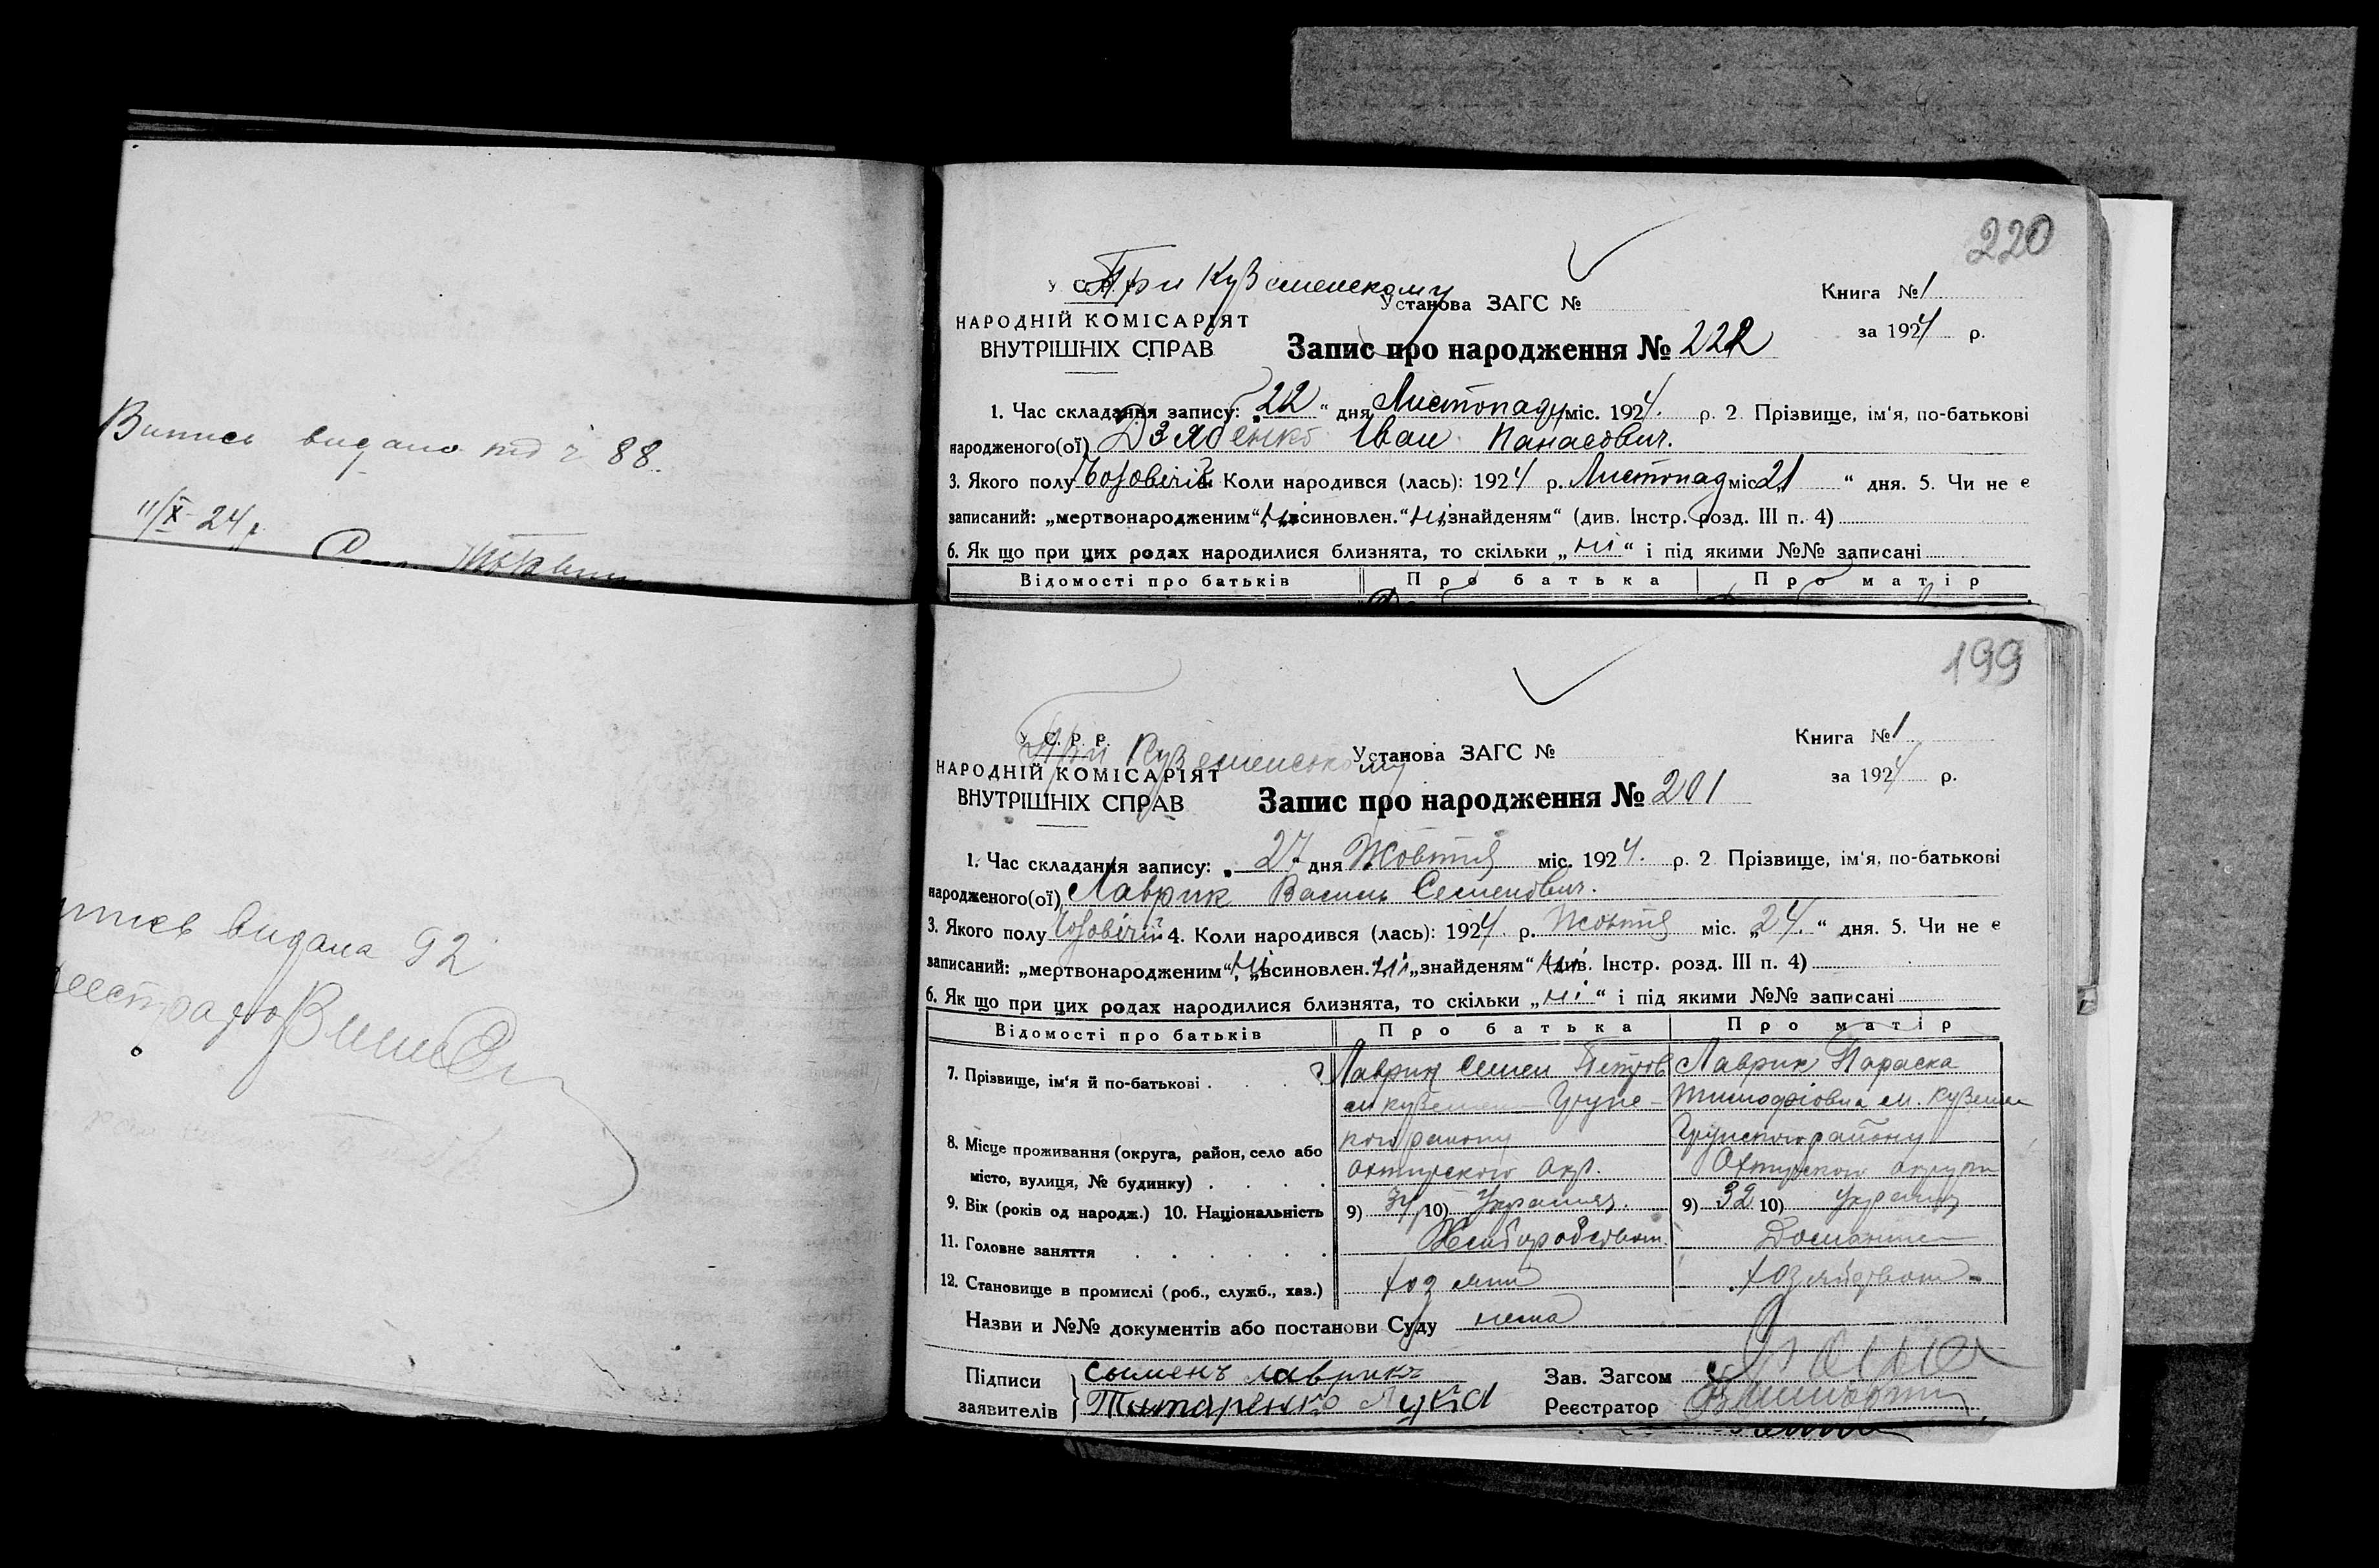 Випись видано під ч 88.
11/X 24 р.
220
У. С. Р. Р.
При Куземенскому
Установа ЗАГС №
Книга № 1
НАРОДНІЙ КОМІСАРІЯТ
ВНУТРІШНІХ СПРАВ
за 1924 р.
Запис про народження № 222
1. Час складання запису: „22“ дня Листопаду міс. 1924. р. 2 Прізвище, ім‘я, по-батькові
народженого(ої) Дзябенко Іван Панасович.
3. Якого полу Чоловічій 4. Коли народився (лась): 1924 р. Листопад міс. 21 “ дня. 5. Чи не є
записаний: „мертвонародженим“ ні „всиновлен.“ ні „знайденям“ (див. Інстр. розд. III п. 4)
6. Як що при цих родах народилися близнята, то скільки „ні“ і під якими №№ записані
Відомості про батьків Про батька Про матір
видана 92
199
У. С. Р. Р.
При Куземенському
Установа ЗАГС №
Книга № 1
НАРОДНІЙ КОМІСАРІЯТ
ВНУТРІШНІХ СПРАВ
за 1924 р.
Запис про народження № 201
1. Час складання запису: „ 27 дня Жовтня міс. 1924. р. 2 Прізвище, ім‘я, по-батькові
народженого(ої) Лаврик Василь Семенович.
3. Якого полу Чоловічій 4. Коли народився (лась): 1924. р. Жовтня міс. „24.“ дня. 5. Чи не є
записаний: „мертвонародженим“ ні „всиновлен. ні „знайденям“ ні (див. Інстр. розд. III п. 4)
6. Як що при цих родах народилися близнята, то скільки „ні“ і під якими №№ записані
Відомості про батьків Про батька Про матір
7. Прізвище, ім‘я й по-батькові . . . . Лаврик Семен Петров Лаврик Параска
Тимофіовна м. Куземен
8. Місце проживання (округа, район, село або кого району Грунского району
місто, вулиця, № будинку) . . . . Охтирского окр. Охтирского округи
9. Вік (років од народж.) 10. Національність 9) 34 10) Украинец. 9) 32 10)
11. Головне заняття . . . . . . Хлиборобством.
12. Становище в промислі (роб., служб., хаз.) хозяин хозяйством
Назви и №№ документів або постанови Суду нема
Підписи сыменъ лаврикъ Зав. Загсом
заявителів Титаренко Лукіа Реєстратор